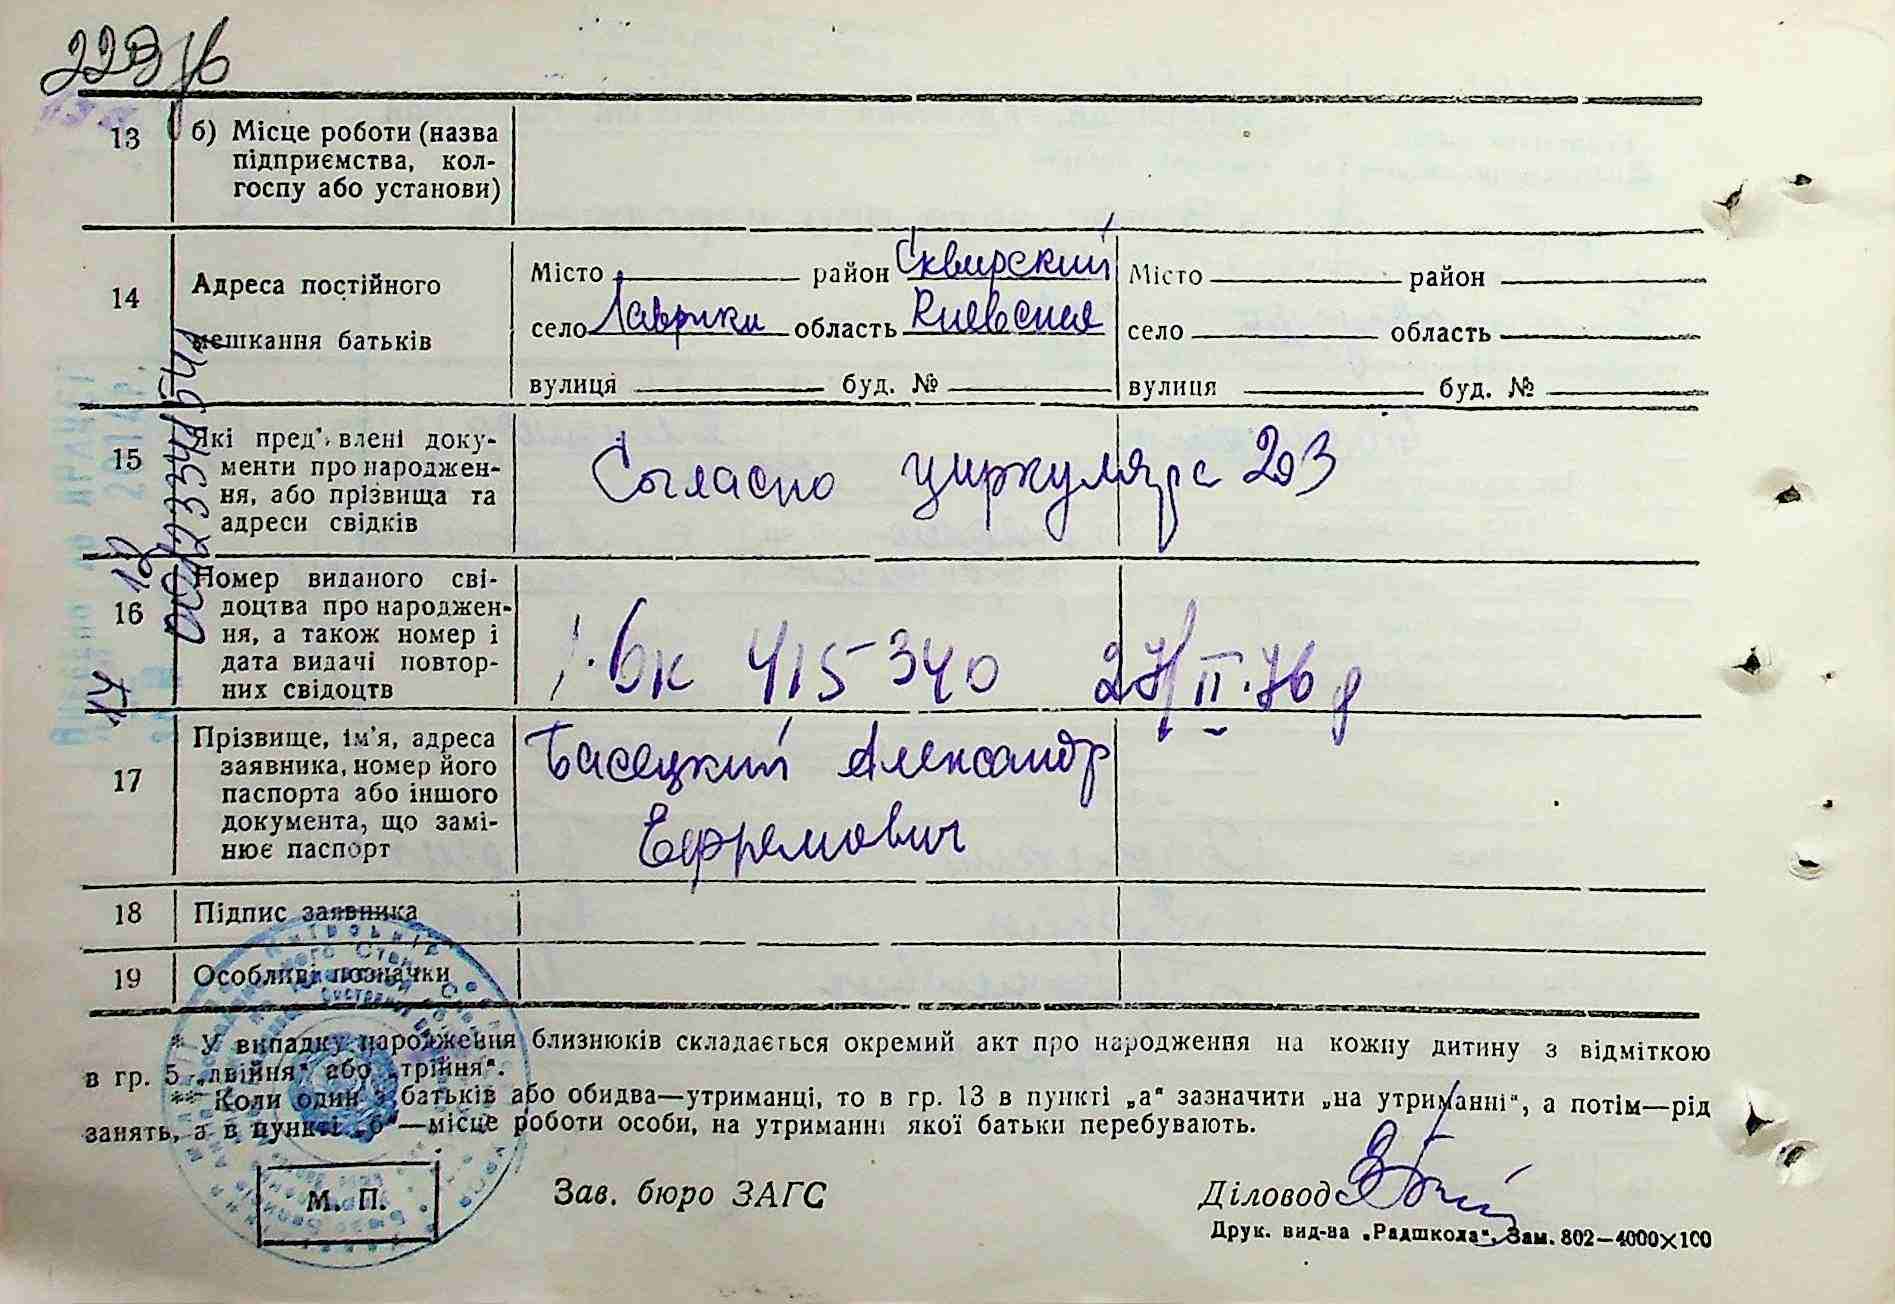 229
13 б) Місце роботи (назва
підприємства, кол-
госпу або установи)
14 Адреса постійного
мешкання батьків
Місто район Сквирский
село Лаврики область Киевская
вулиця буд. №
Місто район
село область
вулиця буд. №
15 Які пред'влені доку-
менти про народжен-
ня, або прізвища та
адреси свідків
Согласно циркуляра 203
16 Номер виданого сві-
доцтва про народжен-
ня, а також номер і
дата видачі повтор-
них свідоцтв
415340 27/II.76 р
17 Прізвище, ім'я, адреса
заявника, номер його
паспорта або іншого
документа, що замі-
нює паспорт
Басецкий Александр
Ефремович
18 Підпис заявника
19 Особливі позначки
* У випадку народження близнюків складається окремий акт про народження на кожну дитину з відміткою
в гр. 5 „двійня" або „трійня".
** Коли один з батьків або обидва—утриманці, то в гр. 13 в пункті „а" зазначити „на утриманні", а потім—рід
занять, а в пункті „б"—місце роботи особи, на утриманні якої батьки перебувають.
М. П.
Зав. бюро ЗАГС
Діловод
Друк. вид-ва „Радшкола". Зам. 802—4000×100